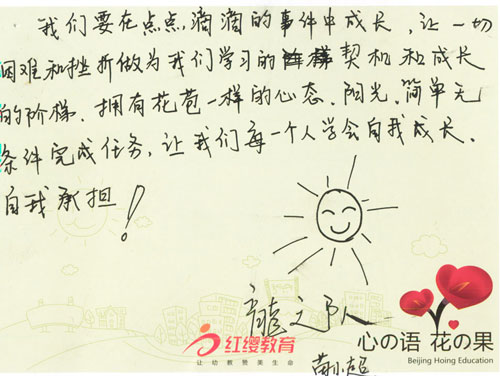 我们要在点点滴滴的事件中成长,让一切
困难和挫折做为我们学习的契机和成长
的阶梯.拥有花苞一样的心态.阳光.简单无
条件完成任务.让我们每一个人学会自我成长.
自我承担!
红缨教育
让幼教赞美生命
心の语 花の果
Beijing Hoing Education